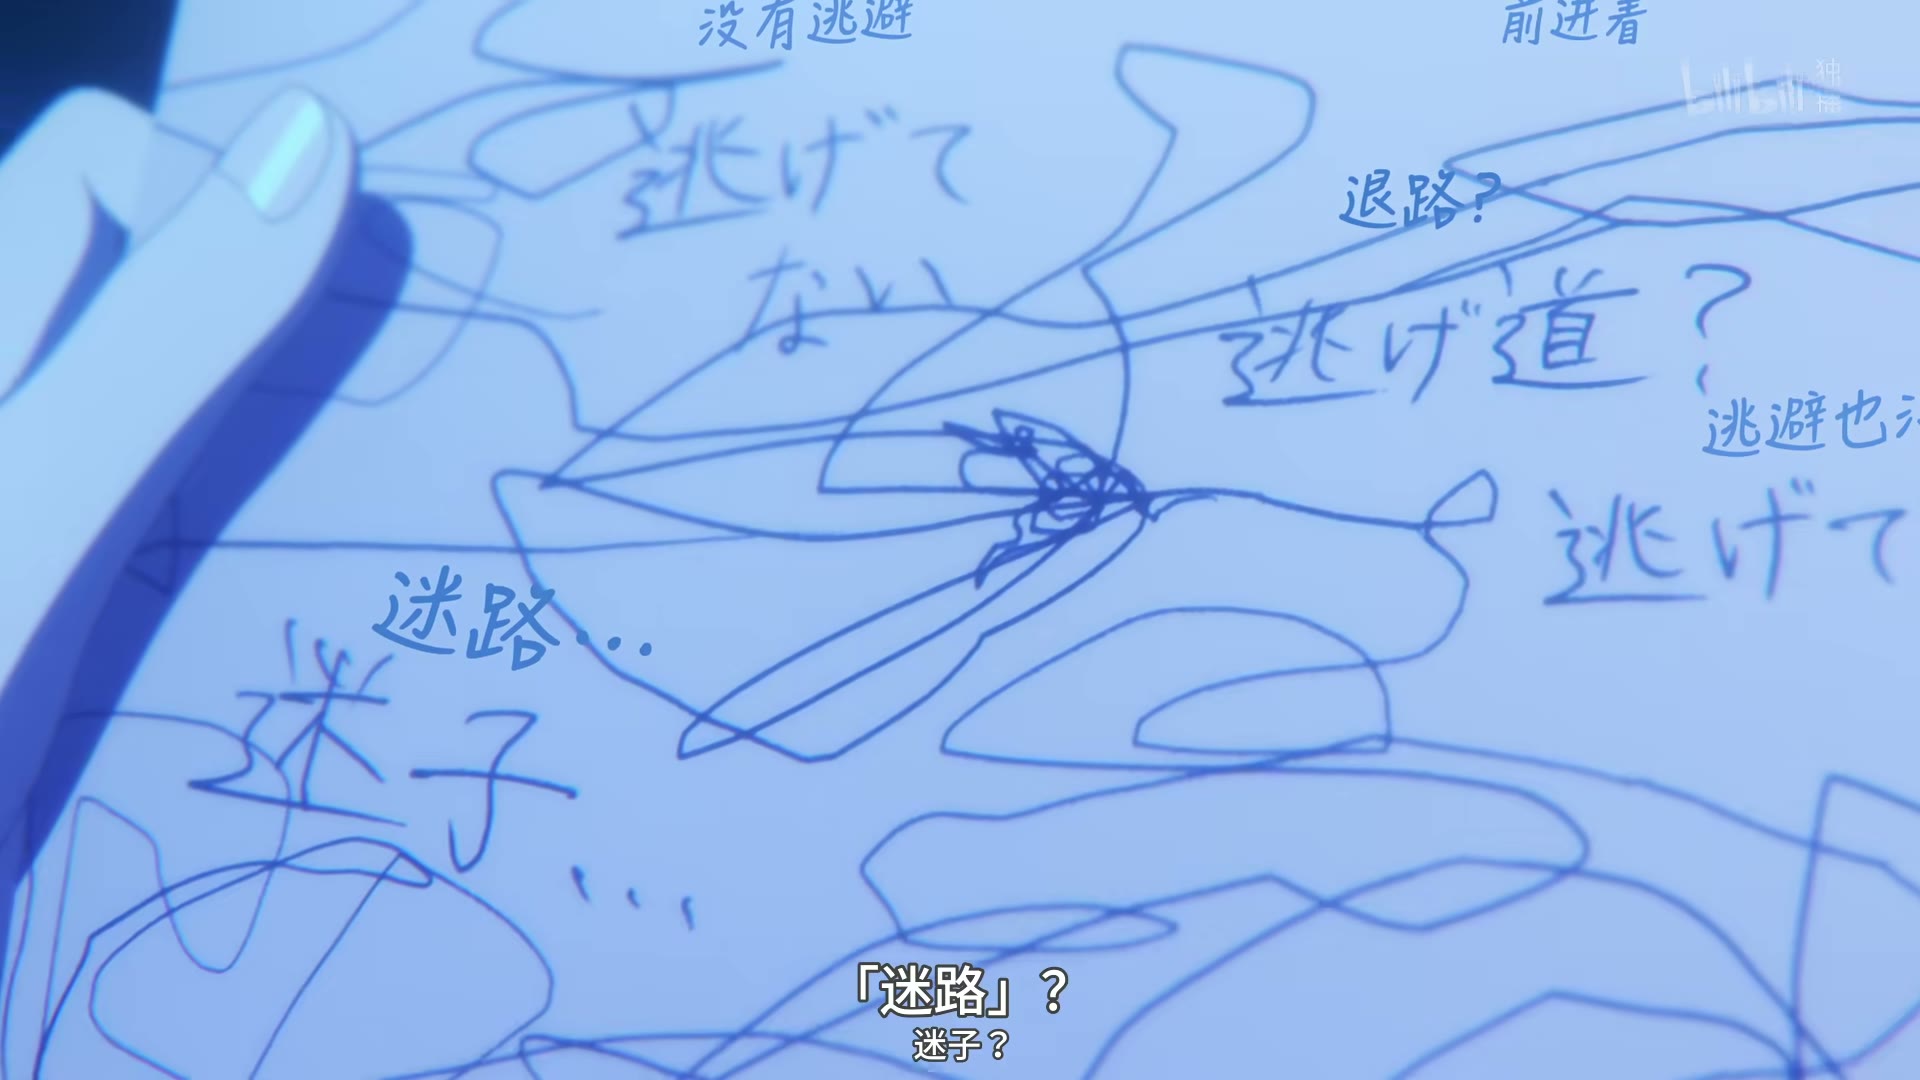 没有逃避
前进着
bilibili 独播
逃げて
ない
退路？
逃げ道？
逃避也
逃げて
迷路...
迷子...
「迷路」？
迷子？